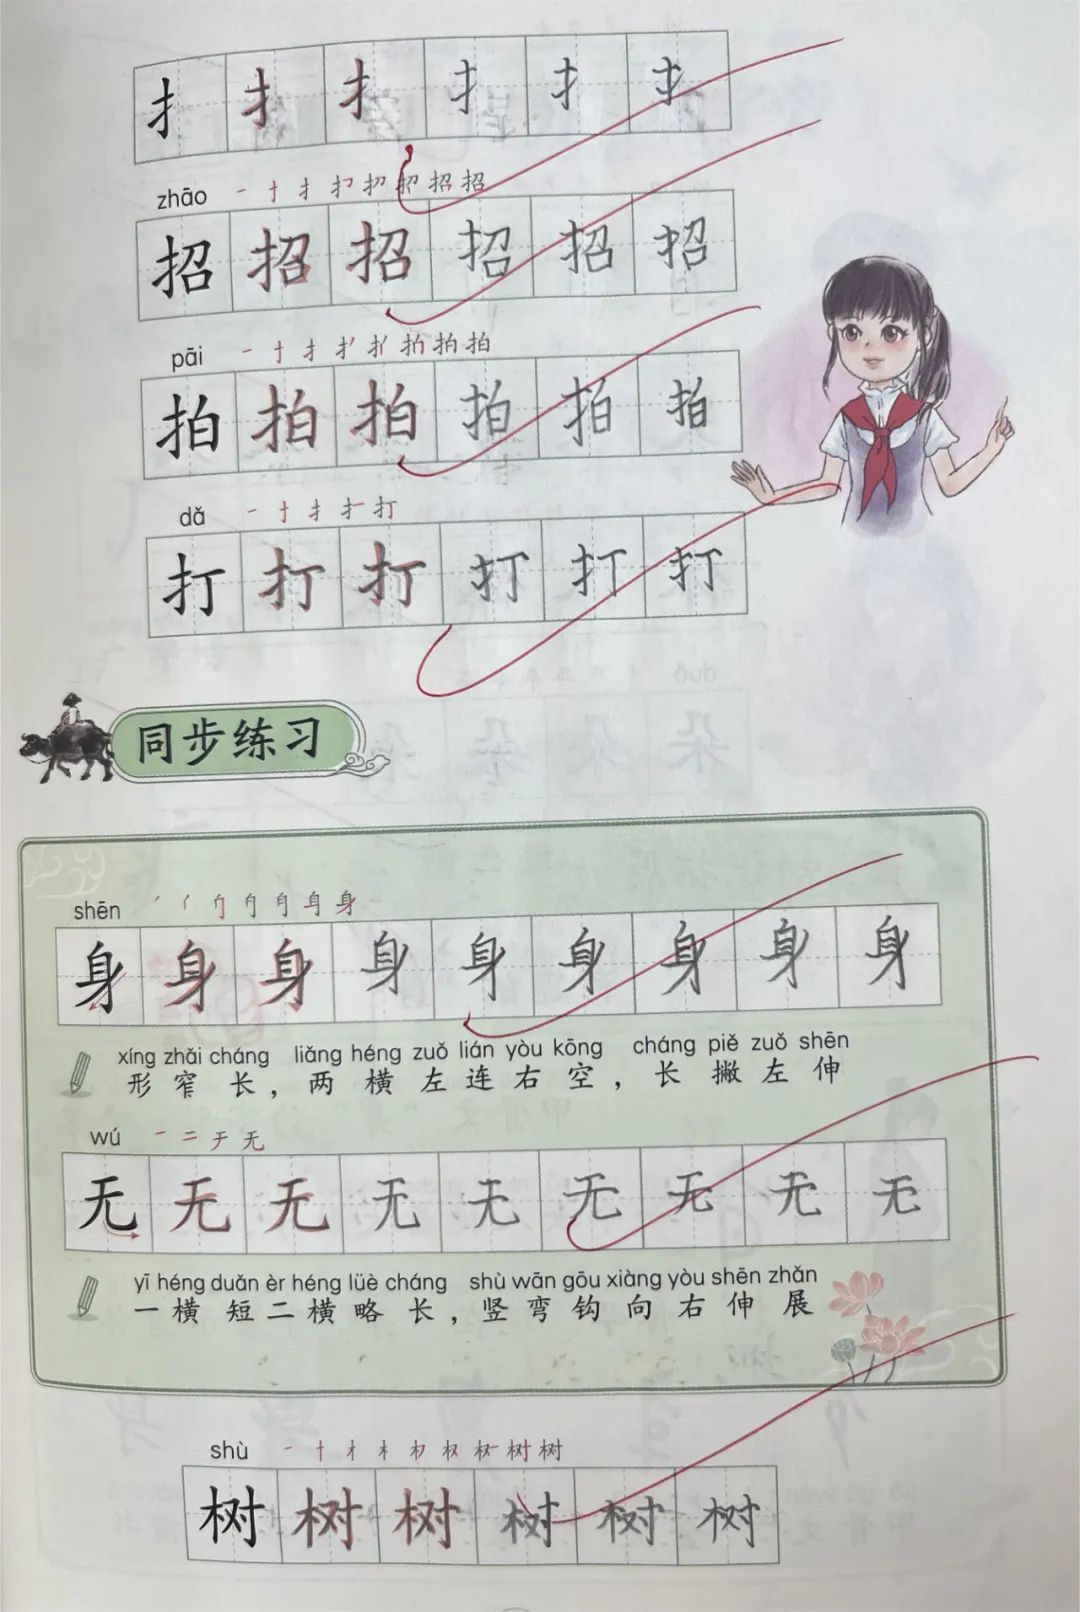 扌 扌 扌 扌 扌 扌
zhāo
招 招 招 招 招 招
pāi
拍 拍 拍 拍 拍 拍
dǎ
打 打 打 打 打 打
同步练习
shēn
身 身 身 身 身 身 身 身 身
xíng zhǎi cháng liǎng héng zuǒ lián yòu kōng cháng piě zuǒ shēn
形窄长，两横左连右空，长撇左伸
wú 一 二 于 无
无 无 无 无 无 无 无 无 无
yī héng duǎn èr héng lüè cháng shù wān gōu xiàng yòu shēn zhǎn
一横短二横略长，竖弯钩向右伸展
shù
树 树 树 树 树 树